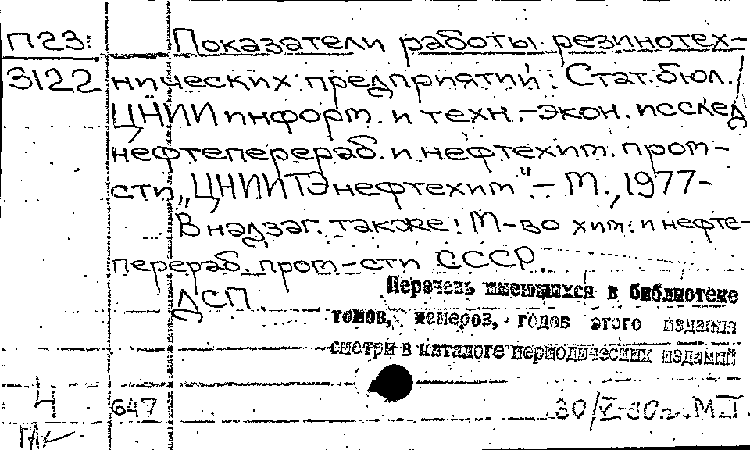 П23: Показатели работы резинотех-
3122 нических предприятий: Стат. бюл.
ЦНИИ информ. и техн.-экон. исслед
нефтеперераб. и нефтехим. пром-
сти „ЦНИИТЭнефтехим“.- М., 1977-
В надзаг. также: М-во хим. и нефте-
перераб. пром-сти СССР.
ДСП.
Перечень имеющихся в библиотеке
томов, номеров, годов этого издания
смотри в каталоге периодических изданий
Ч 647 30/V-80г. М.Т